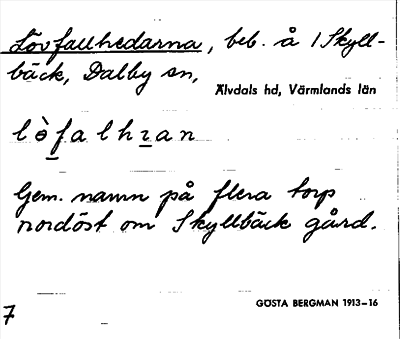 Lövfallhedarna, beb. å 1 Skyll-
bäck, Dalby sn,
Älvdals hd, Värmlands län
lòfalhɪan
Gem. namn på flera torp
nordöst om Skyllbäck gård.
GÖSTA BERGMAN 1913–16
7